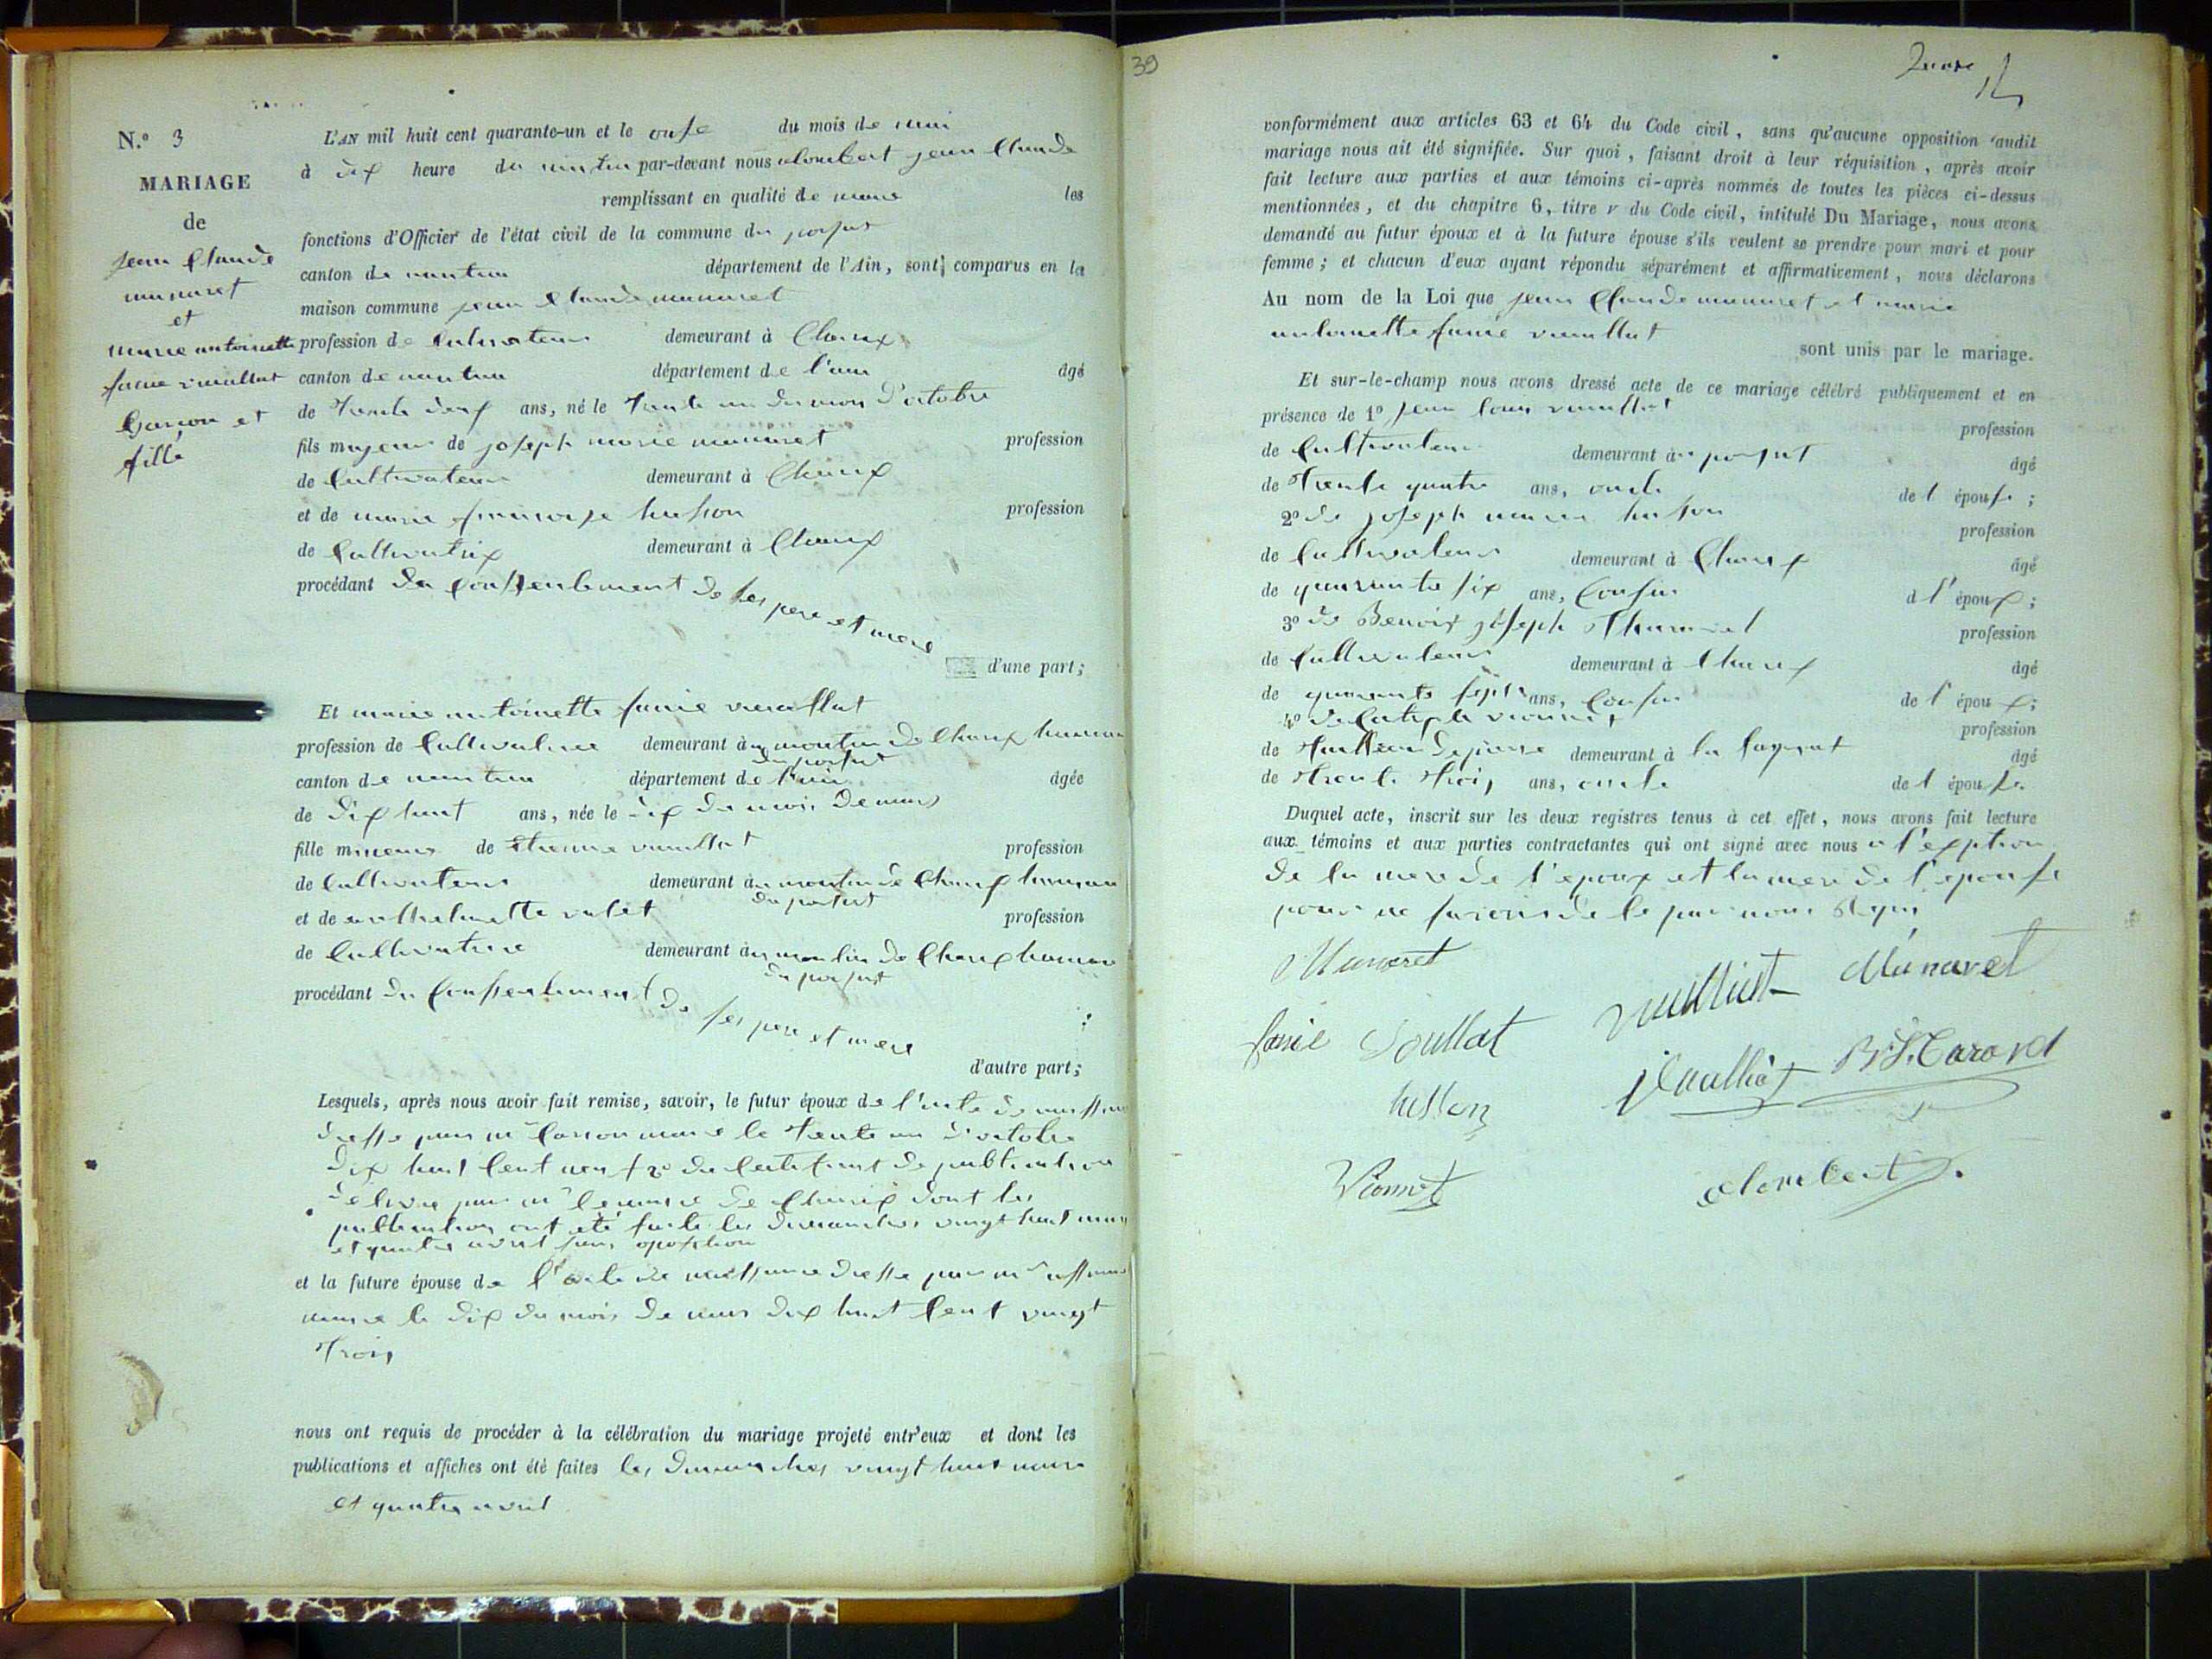 N.° 3
MARIAGE
de
jean Claude
munaret
et
marie antoinette
fanie vuaillat
Garcon et
fille
L'AN mil huit cent quarante-un et le onse du mois de mai
à dix heure du matin par-devant nous aloubert jean Claude
remplissant en qualité de maire les
fonctions d'Officier de l'état civil de la commune du poisat
canton de nantua département de l'Ain, sont comparus en la
maison commune jean Claude munaret
profession de Cultivateur demeurant à Charix
canton de nantua département de l'ain âgé
de trente deux ans, né le trente un du mois d'octobre
fils majeur de joseph marie munaret profession
de Cultivateur demeurant à Charix
et de marie francoise husson profession
de Cultivatrix demeurant à Charix
procédant du Consentement de ses pere et mere
d'une part;
Et marie antoinette fanie vuaillat
profession de Cultivatrice demeurant au moulin de Charix hameau
du poisat
canton de nantua département de l'ain âgée
de dix huit ans, née le dix du mois de mars
fille mineure de etienne vuaillat profession
de Cultivateur demeurant au moulin de Charix hameau
du poisat
et de valet profession
de Cultivatrice demeurant au moulin de Charix hameau
du poisat
procédant du Consentement de ses pere et mere
d'autre part;
Lesquels, après nous avoir fait remise, savoir, le futur époux de l'acte de
dresse par mr maire le trente un d'octobre
dix huit Cent neuf 2° du Certificat de publication
delivre par mr le maire de Charix dont les
publication ont été faite les dimanches vingt huit mars
et quatre avril sans oposition
et la future épouse de l'acte de naissance dresse par mr
maire le dix du mois de mars dix huit Cent vingt
trois
nous ont requis de procéder à la célébration du mariage projeté entr'eux et dont les
publications et affiches ont été faites les dimanches vingt huit mars
et quatre avril
39
conformément aux articles 63 et 64 du Code civil, sans qu'aucune opposition audit
mariage nous ait été signifiée. Sur quoi, faisant droit à leur réquisition, après avoir
fait lecture aux parties et aux témoins ci-après nommés de toutes les pièces ci-dessus
mentionnées, et du chapitre 6, titre V du Code civil, intitulé Du Mariage, nous avons
demandé au futur époux et à la future épouse s'ils veulent se prendre pour mari et pour
femme; et chacun d'eux ayant répondu séparément et affirmativement, nous déclarons
Au nom de la Loi que jean Claude munaret et marie
antoinette fanie vuaillat
sont unis par le mariage.
Et sur-le-champ nous avons dressé acte de ce mariage célébré publiquement et en
présence de 1° jean louis vuaillat
profession
de Cultivateur demeurant au poisat âgé
de trente quatre ans, oncle de l épouse;
2° de joseph marie husson
profession
de Cultivateur demeurant à Charix âgé
de quarante six ans, Cousin d l' époux;
3° de Benoit joseph
profession
de Cultivateur demeurant à Charix âgé
de quarante sept ans, Cousin de l' époux;
4° de
profession
de tailleur de pierre demeurant à la âgé
de trente trois ans, oncle de l épouse.
Duquel acte, inscrit sur les deux registres tenus à cet effet, nous avons fait lecture
aux témoins et aux parties contractantes qui ont signé avec nous a l'exption
de la mere de l'epoux et la mere de l'epouse
pour ne savoir de le par nous
Munaret
vuaillat Munaret
fanie Voullat
jl vuaillat
husson
Vionnet
aloubert